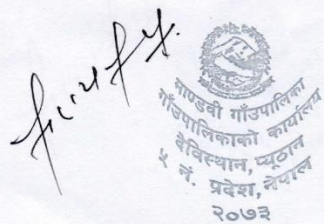 माण्डवी गाउँपालिका
गाउँपालिकाको कार्यालय
वैविस्थान, प्यूठान
५ नं. प्रदेश, नेपाल
२०७३